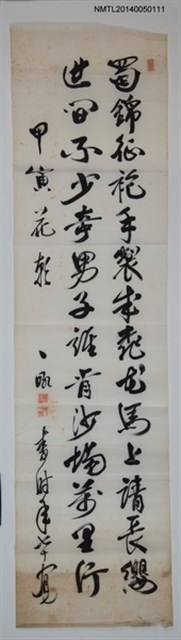 NMTL20140050111
蜀錦征袍手製成桃花馬上請長纓
世間不少奇男子誰肯沙場萬里行
甲寅花朝
書時年